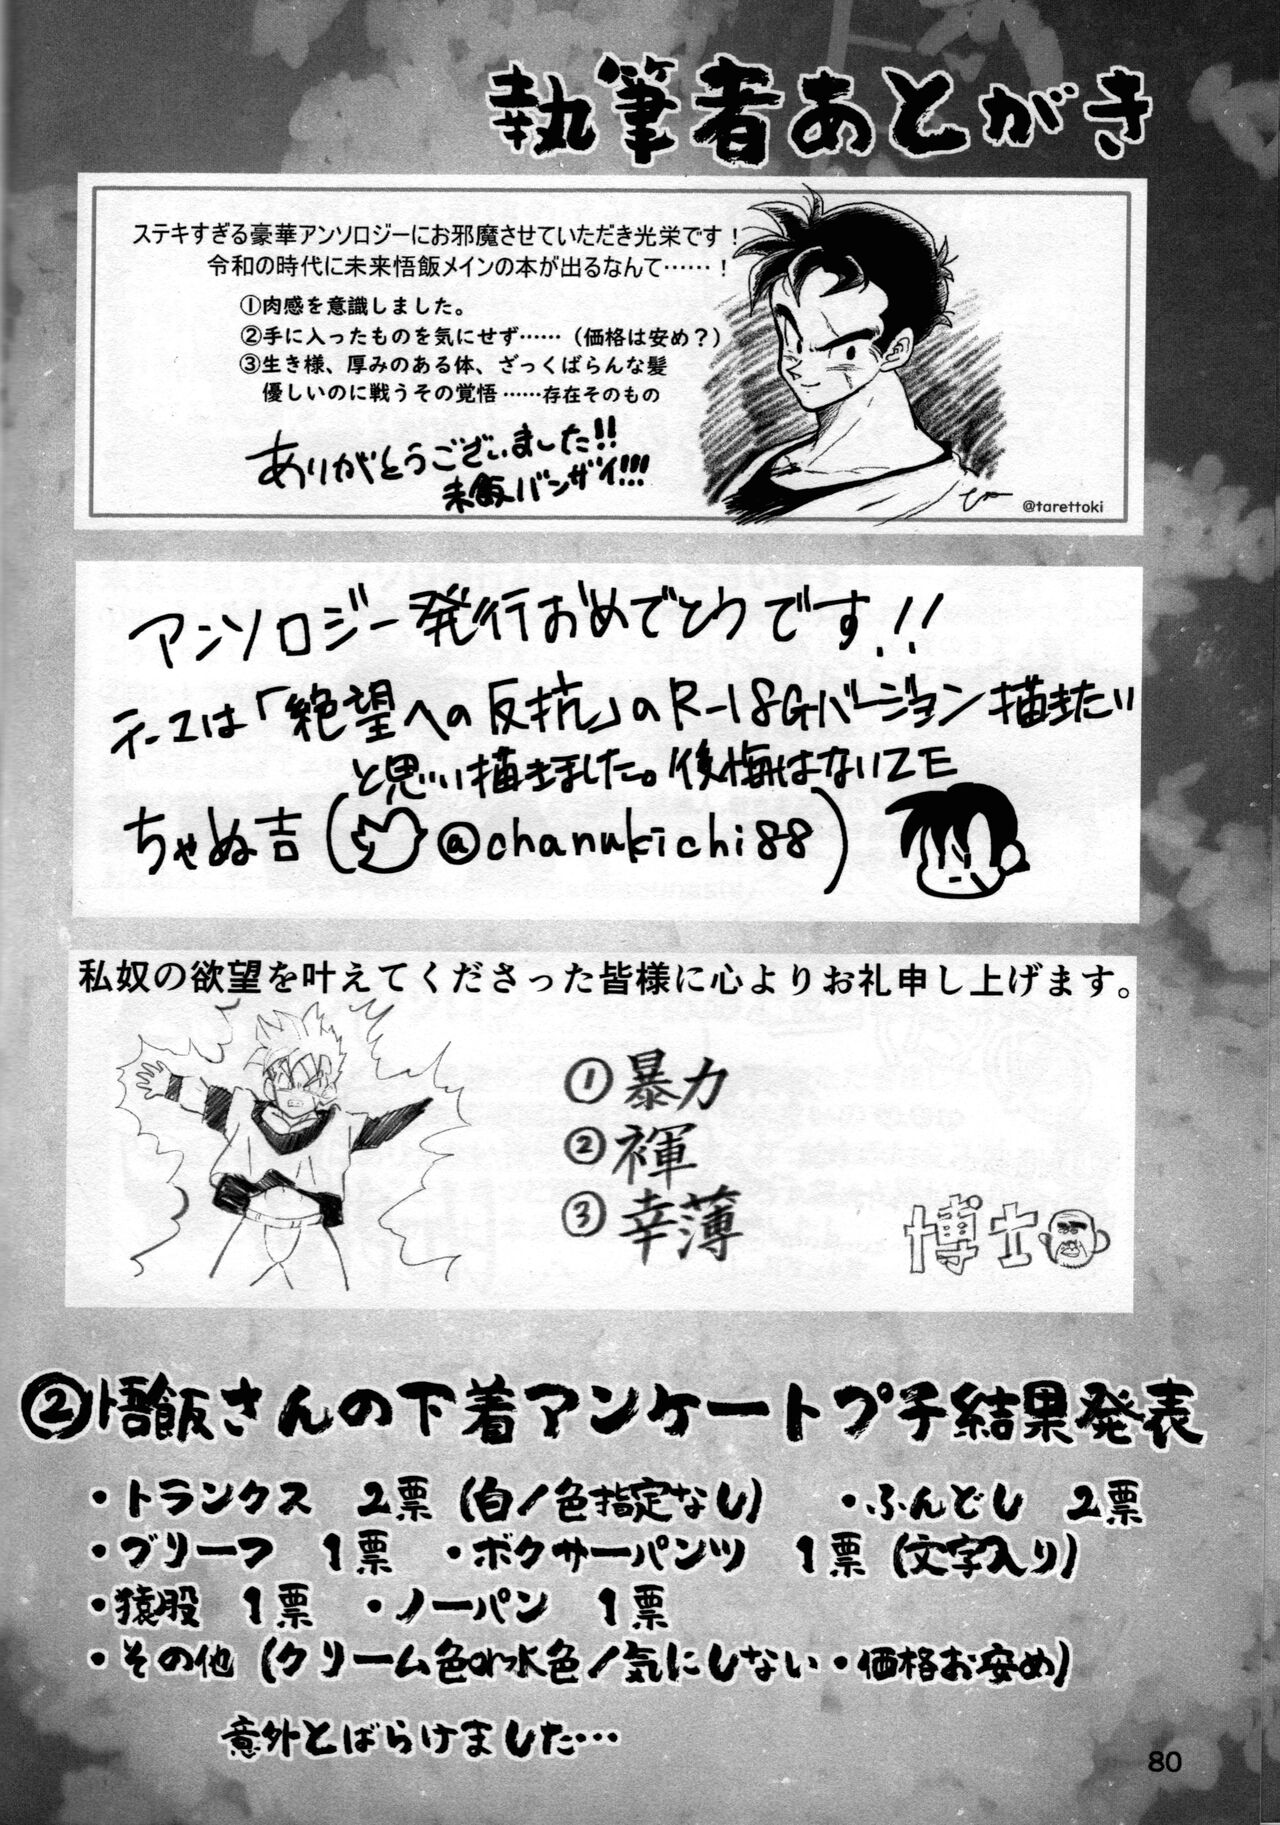 執筆者あとがき
ステキすぎる豪華アンソロジーにお邪魔させていただき光栄です！
令和の時代に未来悟飯メインの本が出るなんて……！
①肉感を意識しました。
②手に入ったものを気にせず……（価格は安め？）
③生き様、厚みのある体、ざっくばらんな髪
優しいのに戦うその覚悟……存在そのもの
ありがとうございました!!
未飯バンザイ!!!
@tarettoki
アンソロジー発行おめでとうです!!
テーマは「絶望への反抗」のR-18Gバージョン描きたい
と思い描きました。後悔はないZE
ちゃぬ吉（@chanukichi88）
私奴の欲望を叶えてくださった皆様に心よりお礼申し上げます。
①暴力
②褌
③幸薄
博士
②悟飯さんの下着アンケートプチ結果発表
・トランクス　2票（白/色指定なし）　・ふんどし　2票
・ブリーフ　1票　・ボクサーパンツ　1票（文字入り）
・猿股　1票　・ノーパン　1票
・その他（クリーム色or水色/気にしない・価格お安め）
意外とばらけました…
80